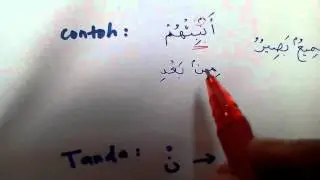 contoh: أَنْبِئْهُمْ بَصِيرٌ
مِنْ بَعْدِ
Tanda: نْ →